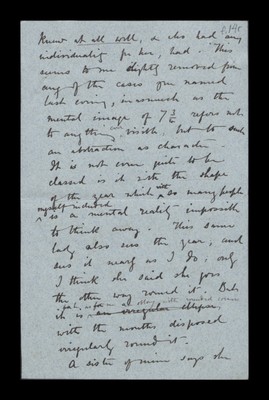 knew at all well, or who had any
individuality for her, had. This
seems to me slightly removed from
any of the cases you named
last evening, inasmuch as the
mental image of 7 3/4 refers not
to anything ever visible, but to such
an abstraction as character.
It is not even quite to be
classed with the shape
of the year which with so many people
myself included
is a mental reality impossible
to think away. This same
lady also sees the year, and
sees it nearly as I do; only
I think she said she goes
the other way round it. But
it is an irregular ellipse,
with the months disposed
irregularly round it.
A sister of mine says she